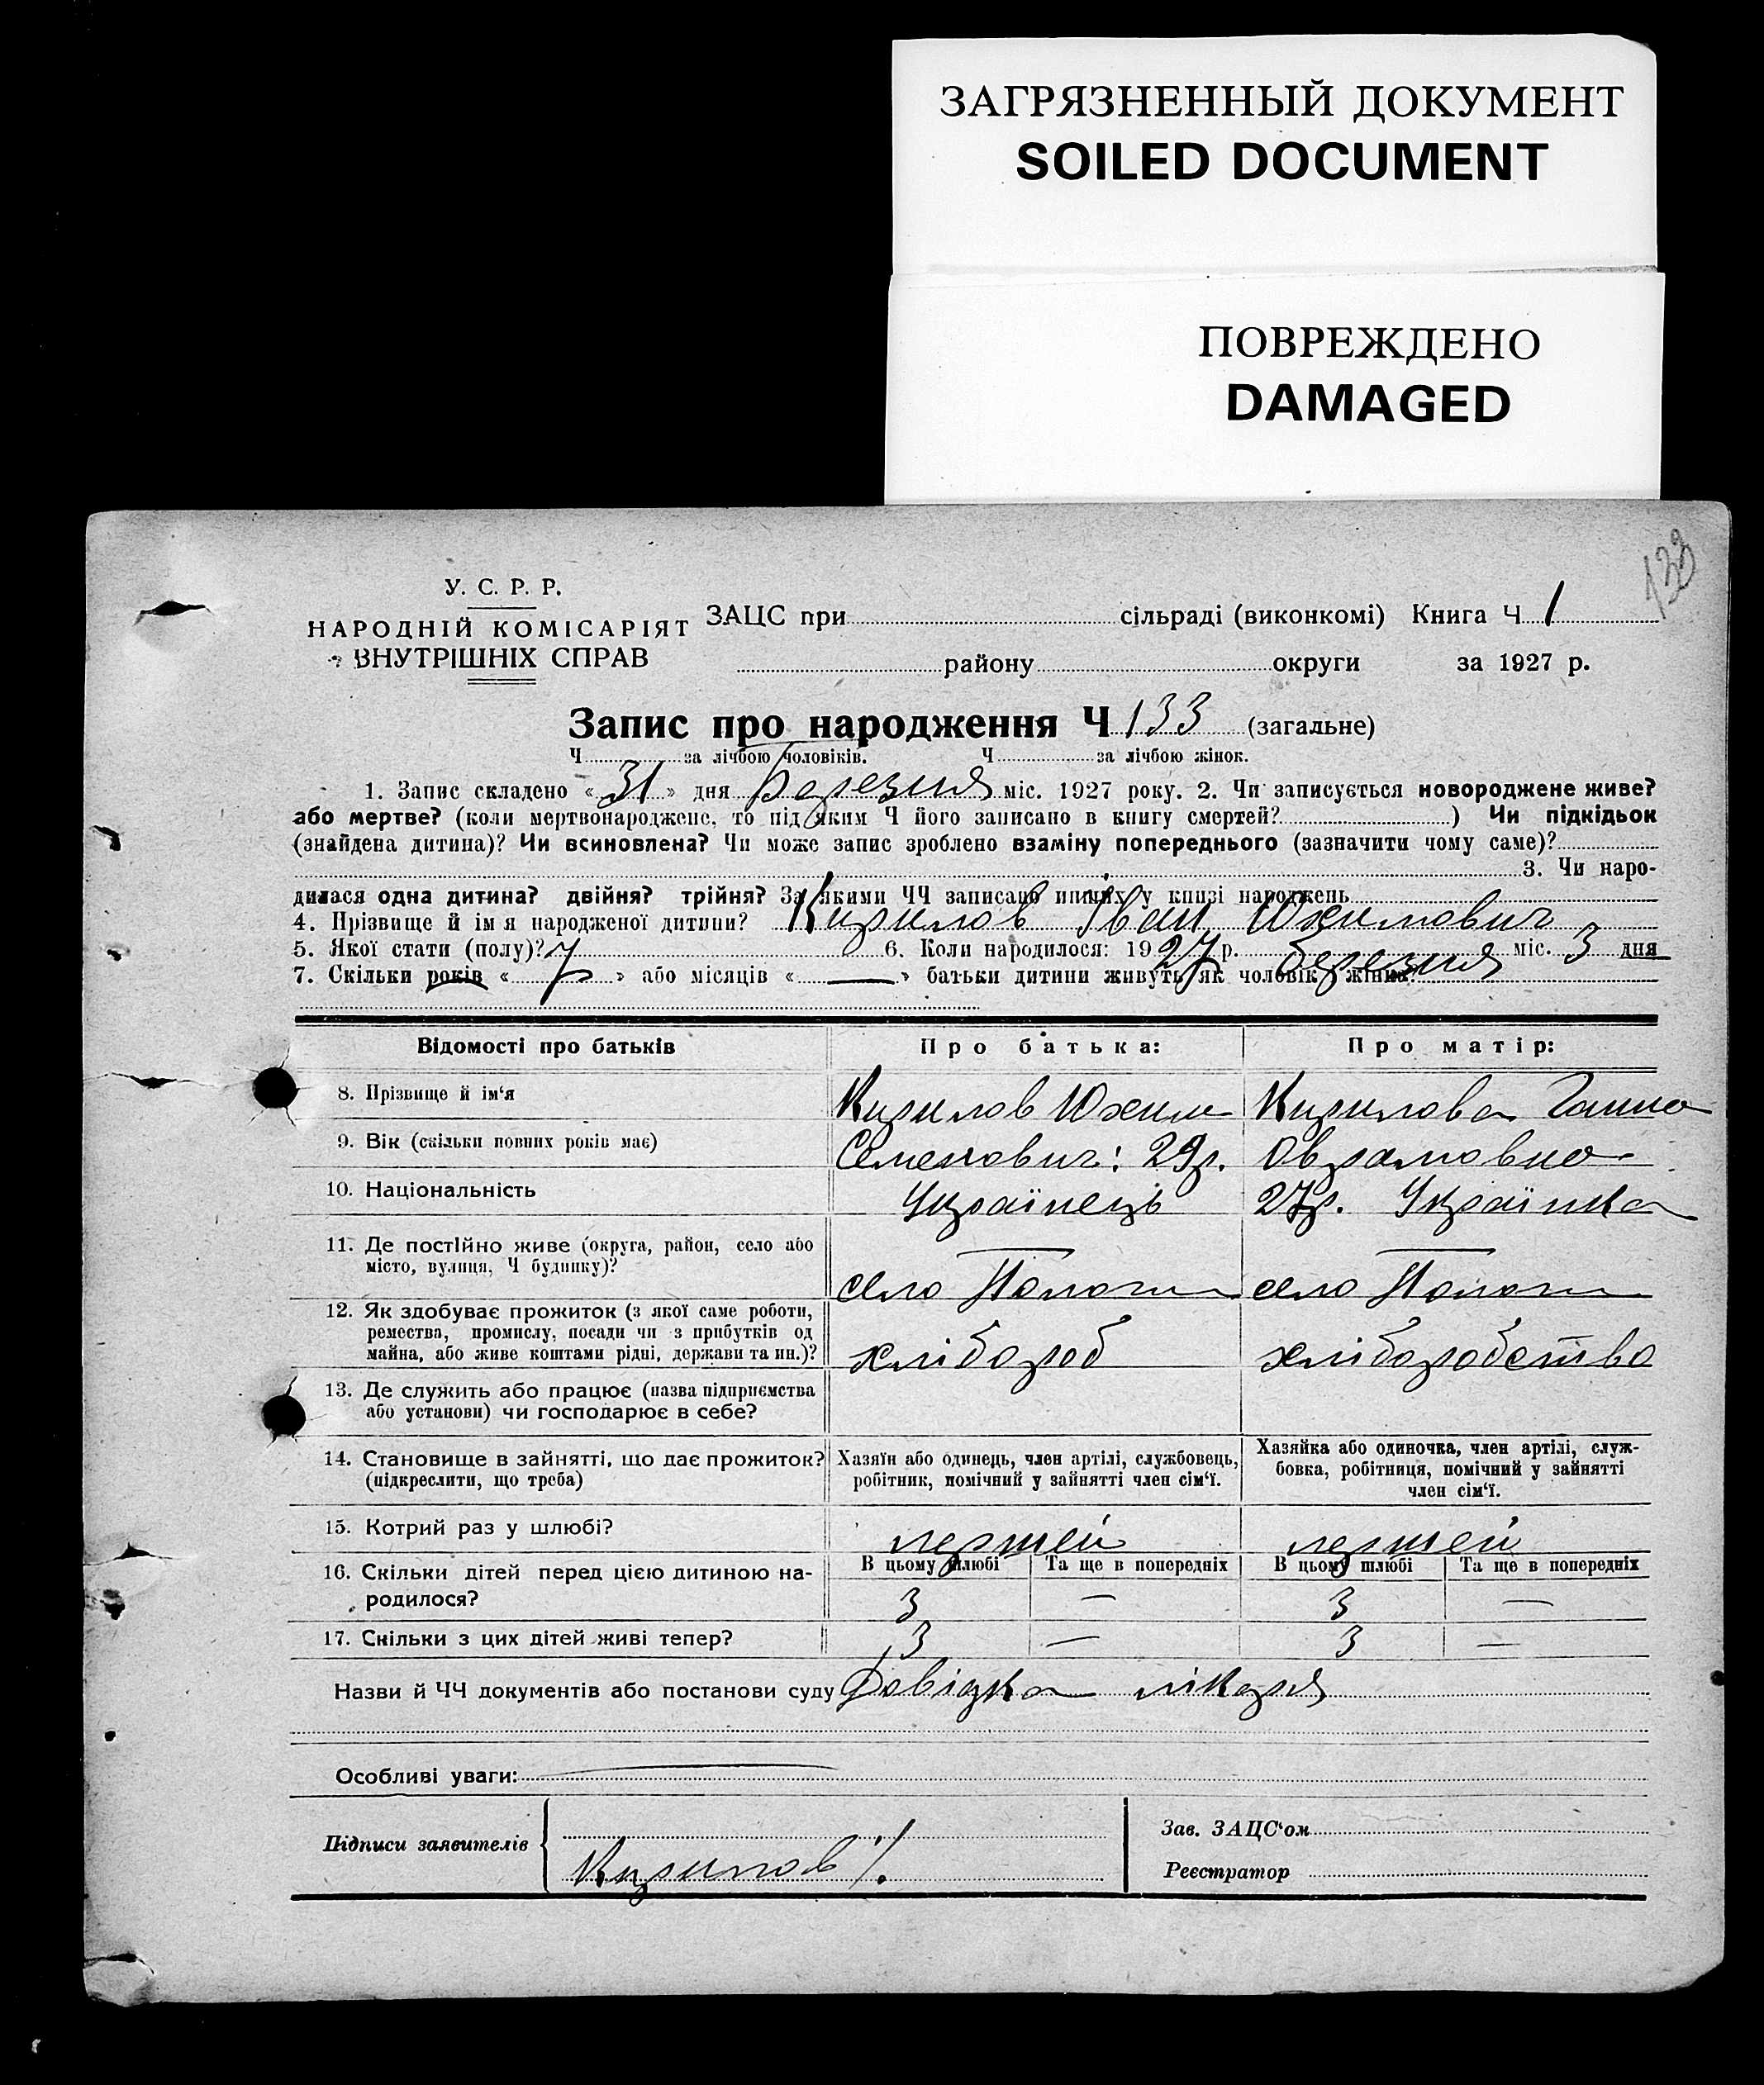 ЗАГРЯЗНЕННЫЙ ДОКУМЕНТ
SOILED DOCUMENT
ПОВРЕЖДЕНО
DAMAGED
133
У. С. Р. Р.
НАРОДНІЙ КОМІСАРІЯТ
ВНУТРІШНІХ СПРАВ
ЗАЦС при сільраді (виконкомі) Книга Ч 1
району округи за 1927 р.
Запис про народження Ч 133 (загальне)
Ч за лічбою чоловіків. Ч за лічбою жінок.
1. Запис складено « 31 » дня Березня міс. 1927 року. 2. Чи записується новороджене живе?
або мертве? (коли мертвонароджене, то під яким Ч його записано в книгу смертей? ) Чи підкідьок
(знайдена дитина)? Чи всиновлена? Чи може запис зроблено взаміну попереднього (зазначити чому саме)?
3. Чи наро-
дилася одна дитина? двійня? трійня? За якими ЧЧ записано инших у книзі народжень
4. Прізвище й ім я народженої дитини? Кирилов Іван Юхимович
5. Якої стати (полу)? 6. Коли народилося: 1927 р. березня міс. 3 дня
7. Скільки років « 7 » або місяців « — » батьки дитини живуть як чоловік жінка?
Відомості про батьків
Про батька:
Про матір:
8. Прізвище й ім‘я
Кирилов Юхим
Кирилова Ганна
9. Вік (скільки повних років має)
Семенович: 29р.
Оврамовна
10. Національність
Українець
27р. Українка
11. Де постійно живе (округа, район, село або
місто, вулиця, Ч будинку)?
село Пологи
село Пологи
12. Як здобуває прожиток (з якої саме роботи,
ремества, промислу, посади чи з прибутків од
майна, або живе коштами рідні, держави та ин.)?
хлібороб
хліборобство
13. Де служить або працює (назва підприємства
або установи) чи господарює в себе?
14. Становище в зайнятті, що дає прожиток?
(підкреслити, що треба)
Хазяїн або одинець, член артілі, службовець,
робітник, помічний у зайнятті член сім‘ї.
Хазяйка або одиночка, член артілі, служ-
бовка, робітниця, помічний у зайнятті
член сім‘ї.
15. Котрий раз у шлюбі?
першей
першей
16. Скільки дітей перед цією дитиною на-
родилося?
В цьому шлюбі Та ще в попередніх В цьому шлюбі Та ще в попередніх
3 — 3 —
17. Скільки з цих дітей живі тепер?
3 — 3 —
Назви й ЧЧ документів або постанови суду Довідка лікаря
Особливі уваги:
Підписи заявителів
Кирилов
Зав. ЗАЦС‘ом
Реєстратор